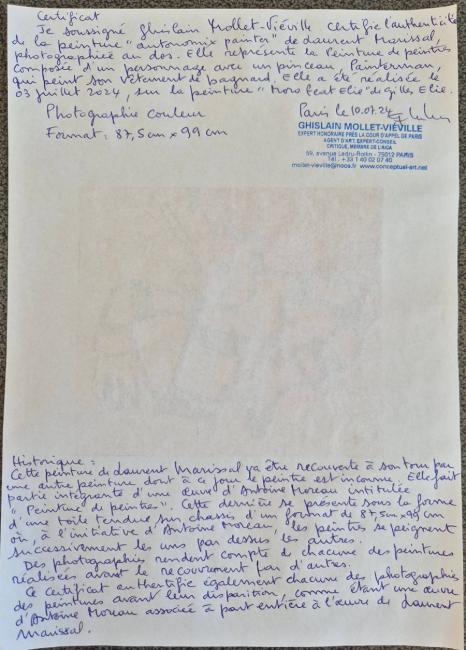 Certificat
Je soussigné Ghislain Mollet-Viéville certifie l'authenticité
de la peinture "autonomix painter" de Laurent Marissal,
photographiée au dos. Elle représente la Peinture de peintres
composée d'un personnage avec un pinceau, Painterman,
qui peint son vêtement de bagnard. Elle a été réalisée le
03 juillet 2024, sur la peinture "Moro feat Elie" de Gilles Elie.
Photographie couleur
Format : 87,5cm x 99 cm
Paris le 10.07.24
GHISLAIN MOLLET-VIÉVILLE
EXPERT HONORAIRE PRÈS LA COUR D'APPEL DE PARIS
AGENT D'ART, EXPERT-CONSEIL
CRITIQUE, MEMBRE DE L'AICA
59, avenue Ledru-Rollin - 75012 PARIS
Tél. : +33 1 40 02 07 40
mollet-vieville@noos.fr www.conceptual-art.net
Historique :
Cette peinture de Laurent Marissal va être recouverte à son tour par
une autre peinture dont à ce jour le peintre est inconnu. Elle fait
partie intégrante d'une œuvre d'Antoine Moreau intitulée
"Peinture de peintres". Cette dernière se présente sous la forme
d'une toile tendue sur chassis d'un format de 87,5cm x 99 cm
où, à l'initiative d'Antoine Moreau, les peintres se peignent
successivement les uns par dessus les autres.
Des photographies rendent compte de chacune des peintures
réalisées avant le recouvrement par d'autres.
Ce certificat authentifie également chacune des photographies
des peintures avant leur disparition, comme étant une œuvre
d'Antoine Moreau associée à part entière à l'œuvre de Laurent
Marissal.